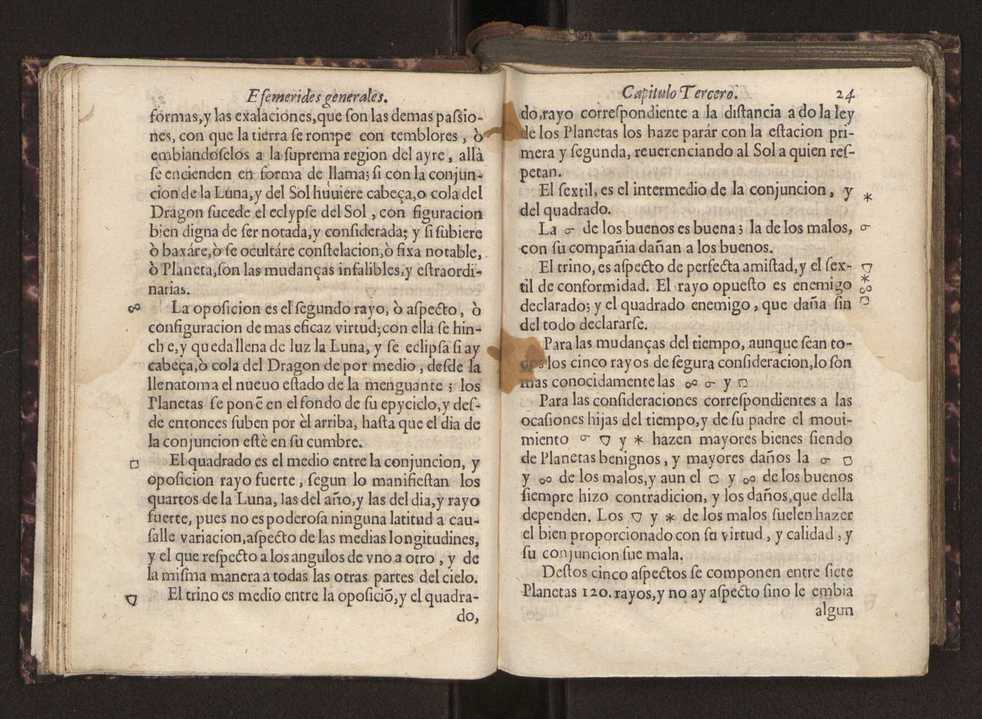 Efemerides generales.
formas, y las exalaciones, que son las demas passio-
nes, con que la tierra se rompe con temblores, ò
embiandoselos a la suprema region del ayre, allà
se encienden en forma de llama; si con la conjun-
cion de la Luna, y del Sol huuiere cabeça, o cola del
Dragon sucede el eclypse del Sol, con figuracion
bien digna de ser notada, y considerada; y si subiere
ò baxáre, ò se ocultáre constelacion, ò fixa notable,
ò Planeta, son las mudanças infalibles, y estraordi-
narias.
☍ La oposicion es el segundo rayo, ò aspecto, ò
configuracion de mas eficaz virtud; con ella se hin-
che, y queda llena de luz la Luna, y se eclipsa si ay
cabeça, ò cola del Dragon de por medio, desde la
llenatoma el nueuo estado de la menguante; los
Planetas se ponẽ en el fondo de su epyciclo, y des-
de entonces suben por èl arriba, hasta que el dia de
la conjuncion estè en su cumbre.
□ El quadrado es el medio entre la conjuncion, y
oposicion rayo fuerte, segun lo manifiestan los
quartos de la Luna, las del año, y las del dia, y rayo
fuerte, pues no es poderosa ninguna latitud a cau-
salle variacion, aspecto de las medias longitudines,
y el que respecto a los angulos de vno a otro, y de
la misma manera a todas las otras partes del cielo.
▽ El trino es medio entre la oposiciõ, y el quadra-
do,
Capitulo Tercero. 24
do, rayo correspondiente a la distancia a do la ley
de los Planetas los haze parár con la estacion pri-
mera y segunda, reuerenciando al Sol a quien res-
petan.
El sextil, es el intermedio de la conjuncion, y *
del quadrado.
La ☌ de los buenos es buena; la de los malos, ☌
con su compañia dañan a los buenos.
El trino, es aspecto de perfecta amistad, y el sex- ▽
til de conformidad. El rayo opuesto es enemigo *
declarado; y el quadrado enemigo, que daña sin ☍ □
del todo declararse.
Para las mudanças del tiempo, aunque sean to-
dos los cinco rayos de segura consideracion, lo son
mas conocidamente las ☍ ☌ y □
Para las consideraciones correspondientes a las
ocasiones hijas del tiempo, y de su padre el moui-
miento ☌ ▽ y * hazen mayores bienes siendo
de Planetas benignos, y mayores daños la ☌ □
y ☍ de los malos, y aun el □ y ☍ de los buenos
siempre hizo contradicion, y los daños, que della
dependen. Los ▽ y * de los malos suelen hazer
el bien proporcionado con su virtud, y calidad, y
su conjuncion fue mala.
Destos cinco aspectos se componen entre siete
Planetas 120. rayos, y no ay aspecto sino le embia
algun